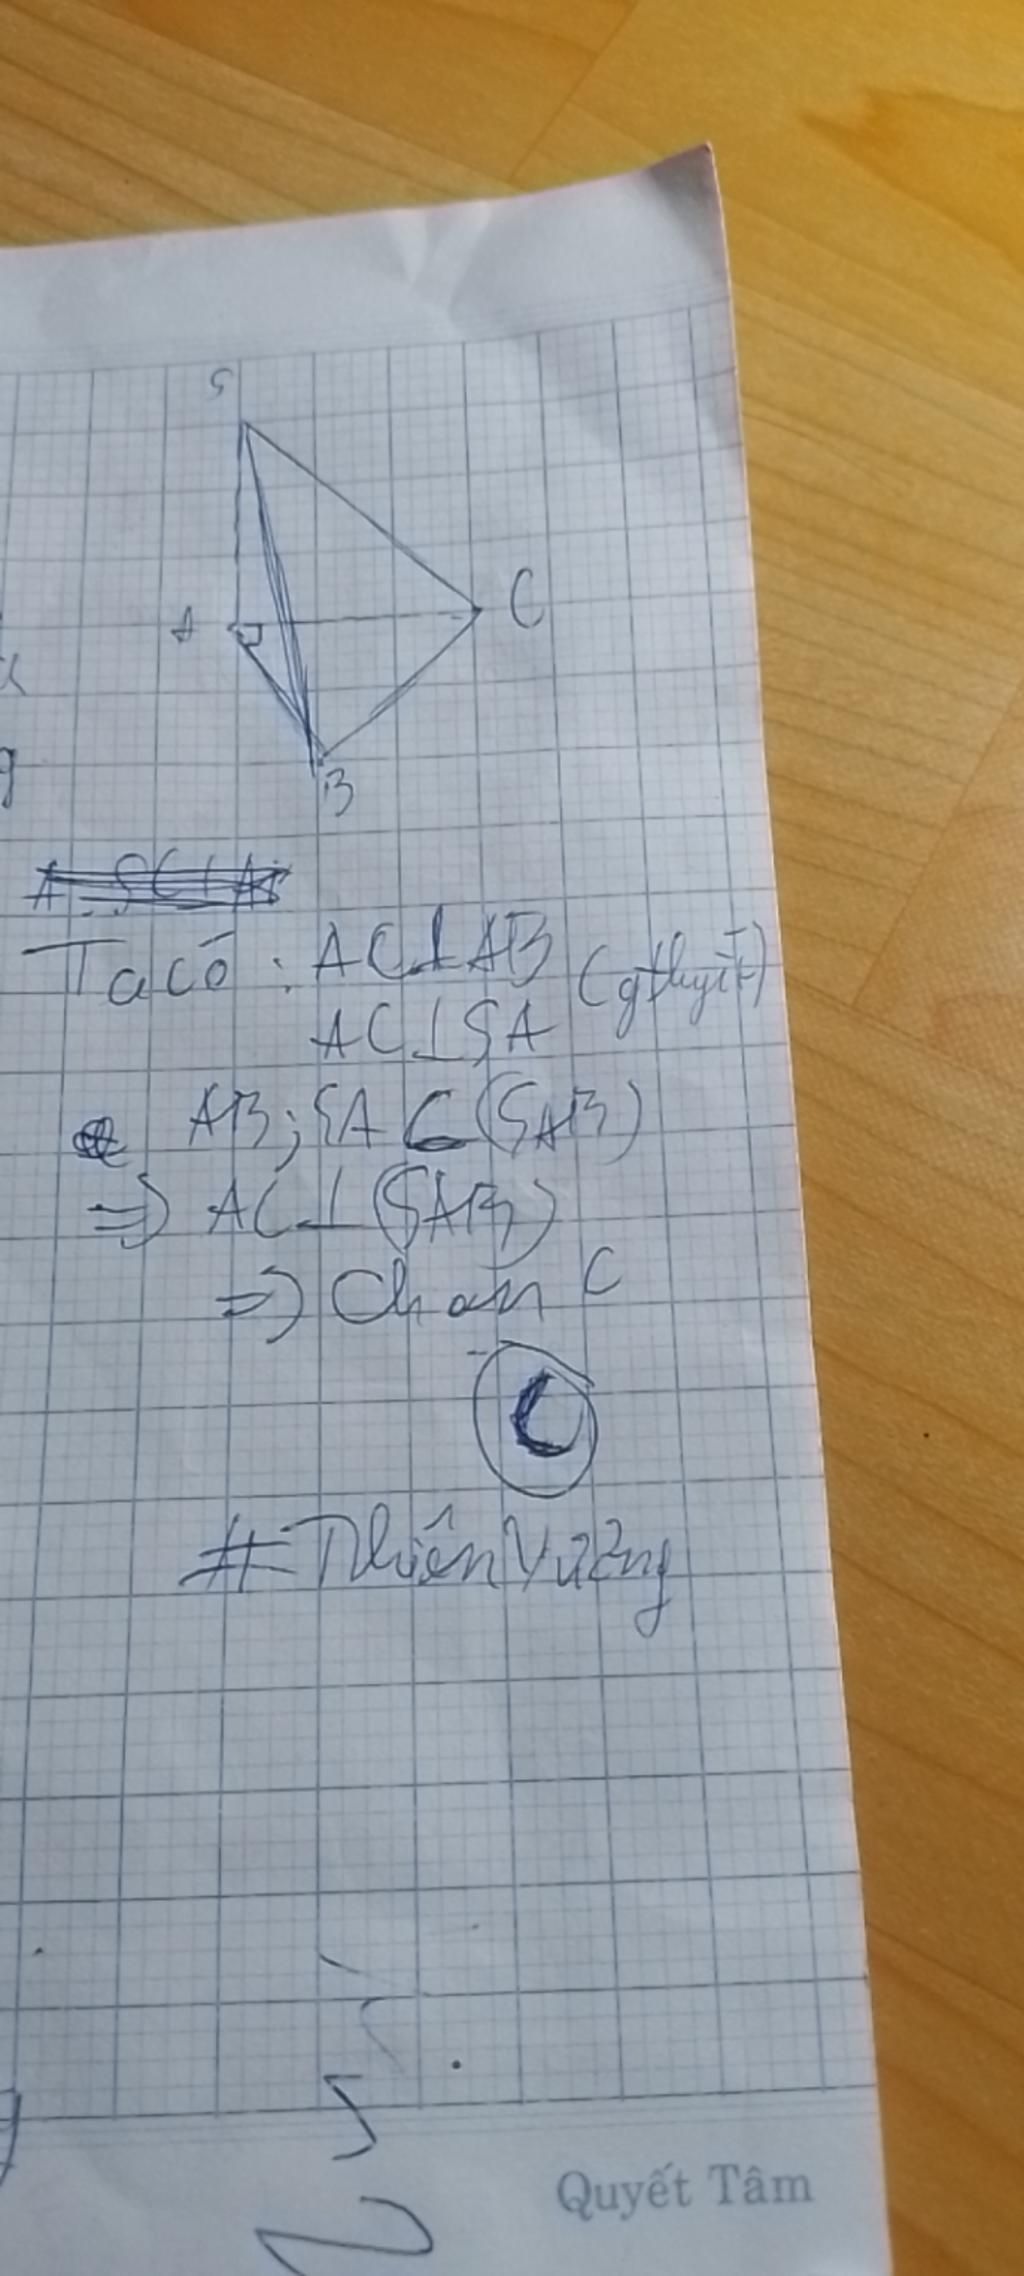 S
A
C
B
Ta có: AC⊥AB (gthuyết)
AC⊥SA
AB; SA ⊂ (SAB)
=> AC⊥(SAB)
=> Chọn C
C
Quyết Tâm